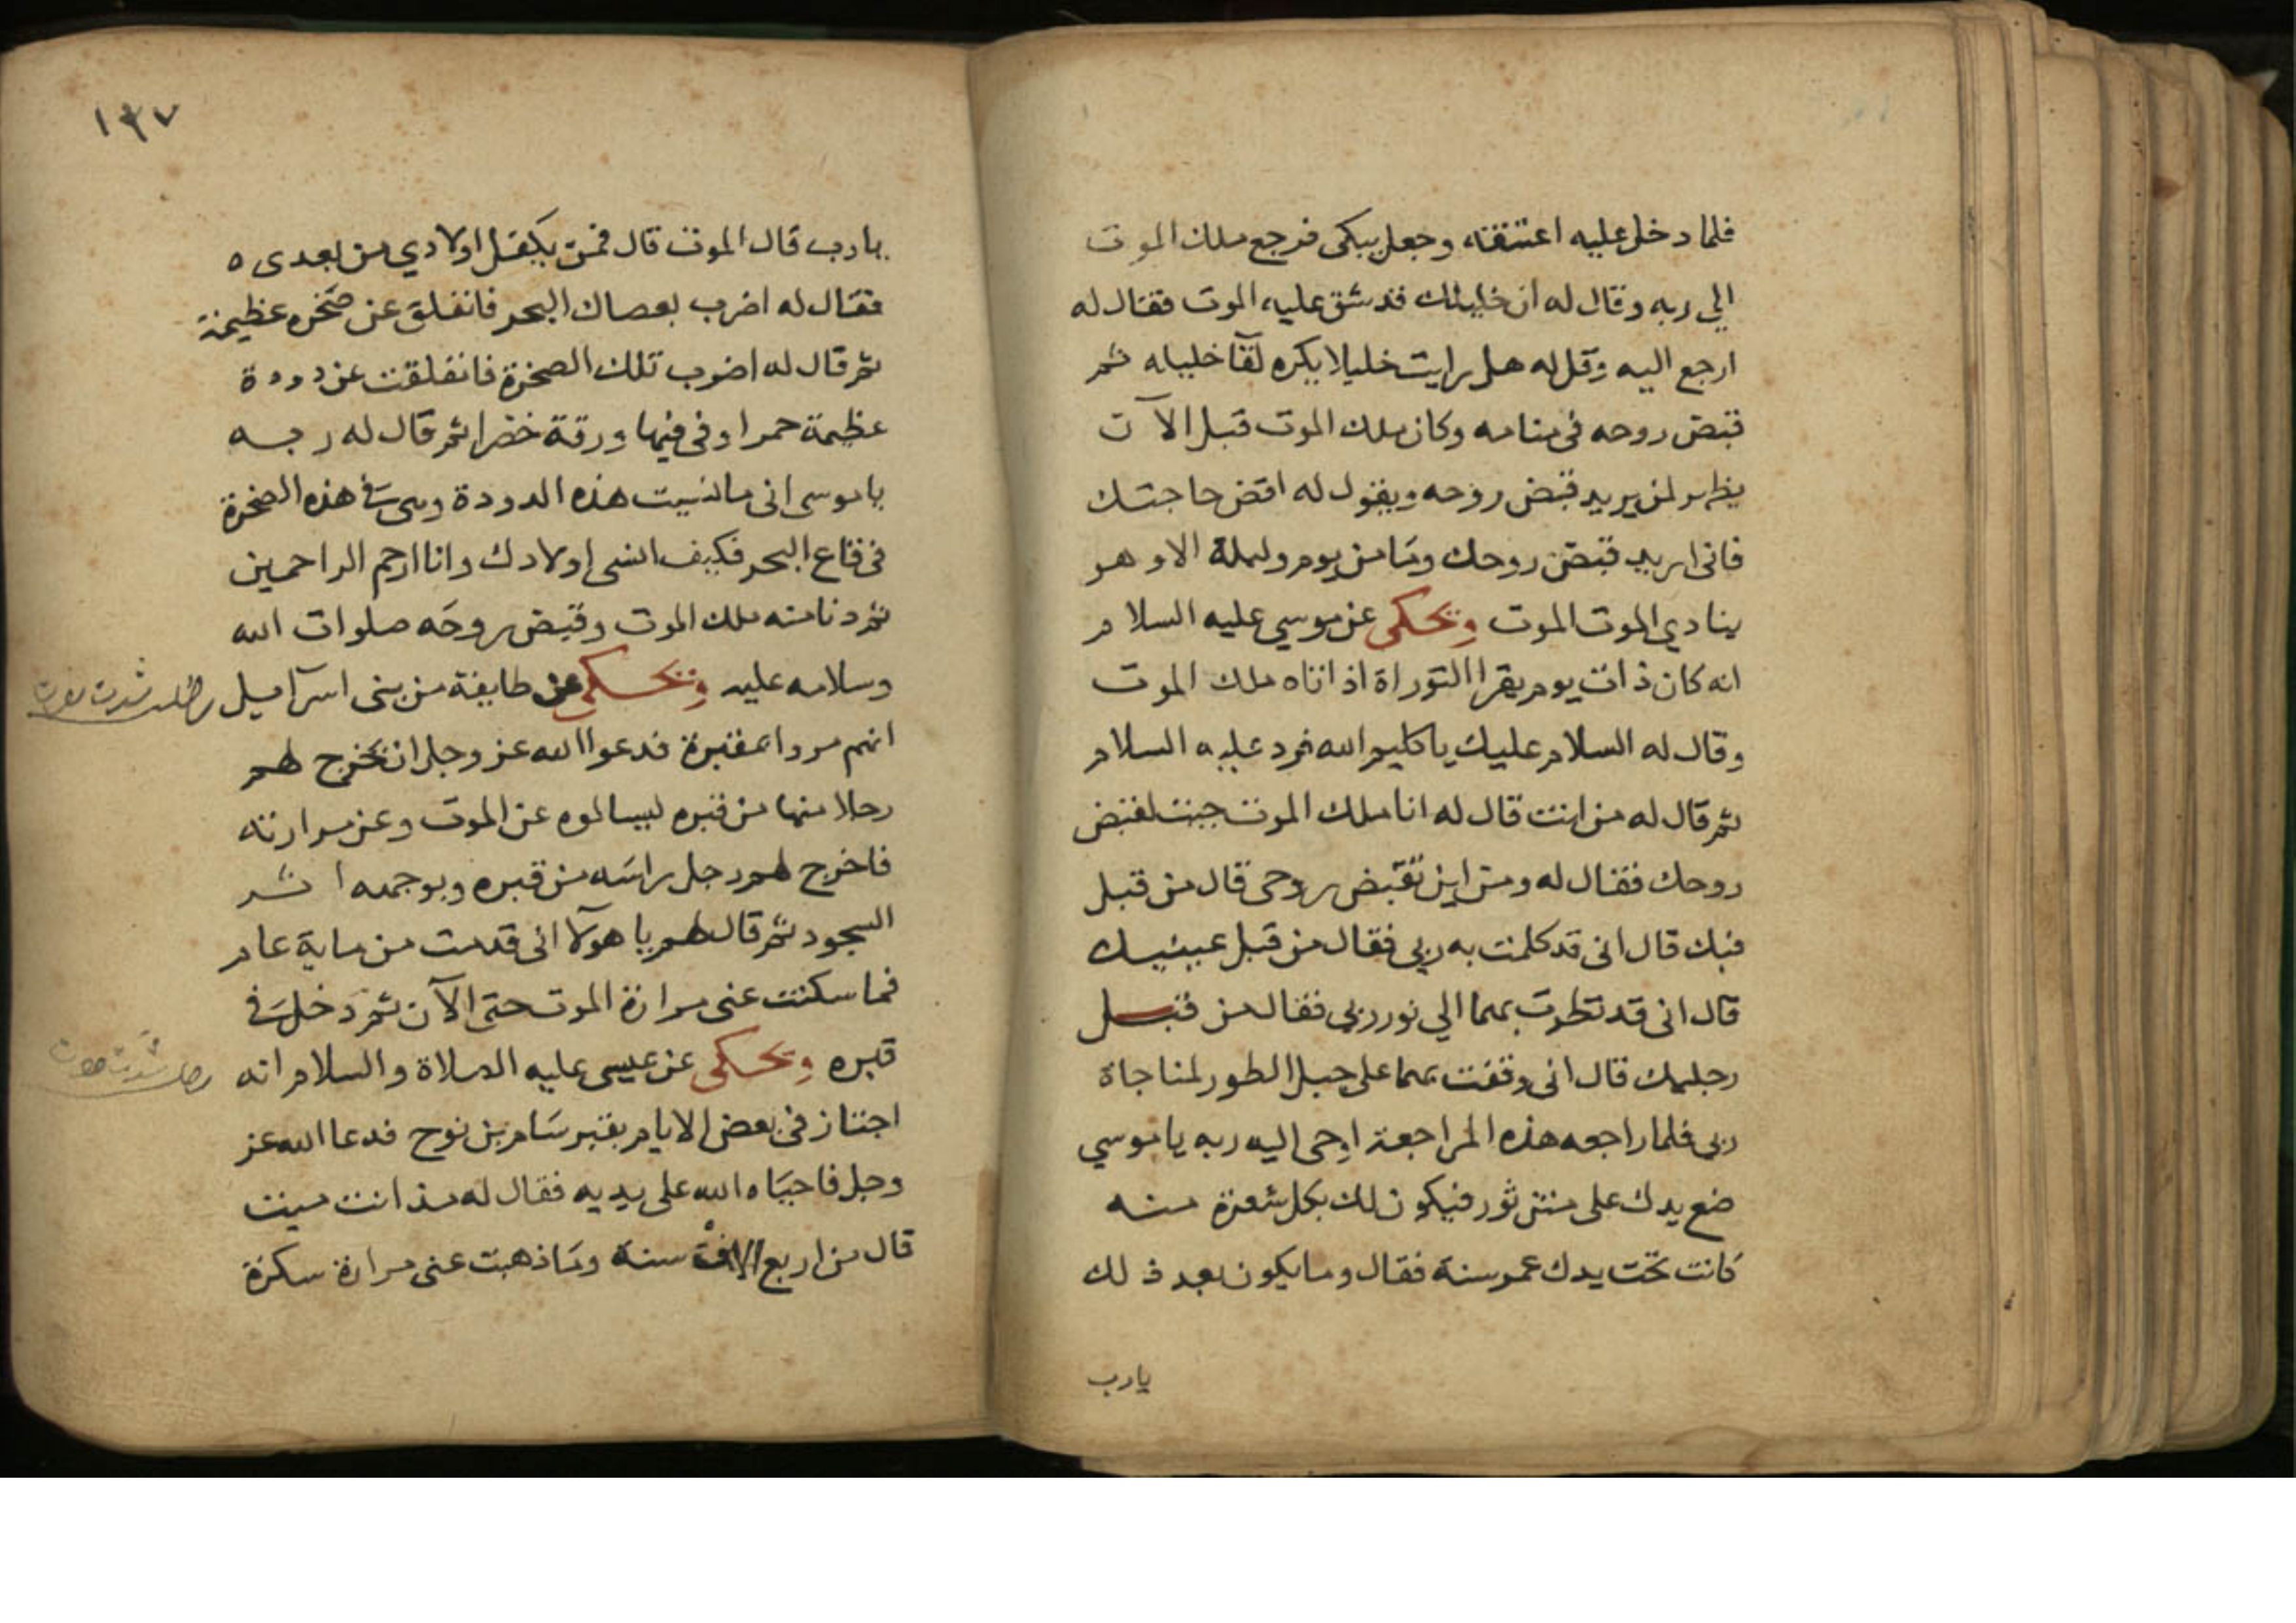 فلما دخل عليه اعتنقه وجعل يبكى فرجع ملك الموت
الي ربه وقال له ان خليلك قد شق عليه الموت فقال له
ارجع اليه وقل له هل رايت خليلا يكره لقآ خليله ثم
قبض روحه فى منامه وكان ملك الموت قبل الآن
يظهر لمن يريد قبض روحه ويقول له اقض حاجتك
فانى اريد قبض روحك وما من يوم وليلة الا وهو
ينادي الموت الموت ويحكى عن موسي عليه السلام
انه كان ذات يوم يقرا التوراة اذ اتاه ملك الموت
وقال له السلام عليك يا كليم الله فرد عليه السلام
ثم قال له من انت قال له انا ملك الموت جيت لقبض
روحك فقال له ومن اين تقبض روحى قال من قبل
فيك قال انى قد كلمت به ربي فقال من قبل عينيك
قال انى قد نظرت بهما الي نور ربي فقال من قبل
رجليك قال انى وقفت بهما على جبل الطور لمناجاة
ربى فلما راجعه هذه المراجعة اوحى اليه ربه يا موسي
ضع يدك على متن ثور فيكون لك بكل شعرة منه
كانت تحت يدك عمر سنة فقال وما يكون بعد ذلك
يارب
١٣٧
يارب قال الموت قال فمن يكفل اولادي من بعدى ه
فقال له اضرب بعصاك البحر فانفلق عن صخره عظيمة
ثم قال له اضرب تلك الصخرة فانفلقت عن دودة
عظيمة حمرا وفى فيها ورقة خضرا ثم قال له ربه
يا موسى انى ما نسيت هذه الدودة وهى فى هذه الصخرة
فى قاع البحر فكيف انسى اولادك وانا ارحم الراحمين
ثم دنا منه ملك الموت وقبض روحه صلوات الله
وسلامه عليه ويحكى عن طايفة من بنى اسرآئيل
انهم مروا بمقبرة فدعوا الله عز وجل ان يخرج لهم
رجلا منها من قبره ليسالوه عن الموت وعن مرارته
فاخرج لهم رجل راسه من قبره وبوجهه اثر
السجود ثم قال لهم يا هولآ انى قدمت من ماية عام
فما سكنت عنى مرارة الموت حتى الآن ثم دخل فى
قبره ويحكى عن عيسى عليه الصلاة والسلام انه
اجتاز فى بعض الايام بقبر سام بن نوح فدعا الله عز
وجل فاحياه الله على يديه فقال له مذ انت ميت
قال من اربع الاف سنة وما ذهبت عنى مرارة سكرة